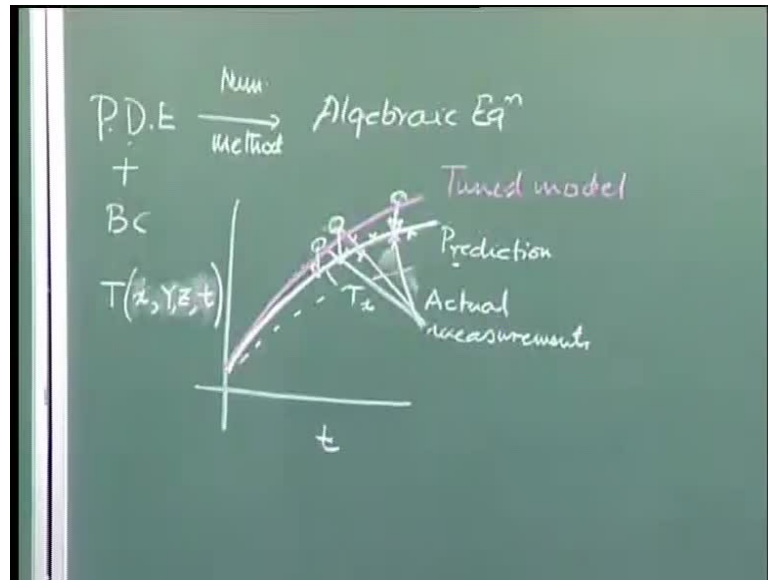 P.D.E Num. method Algebraic Eqⁿ
+
BC
T(x,y,z,t)
Tuned model
Prediction
Tx
Actual
measurements
t